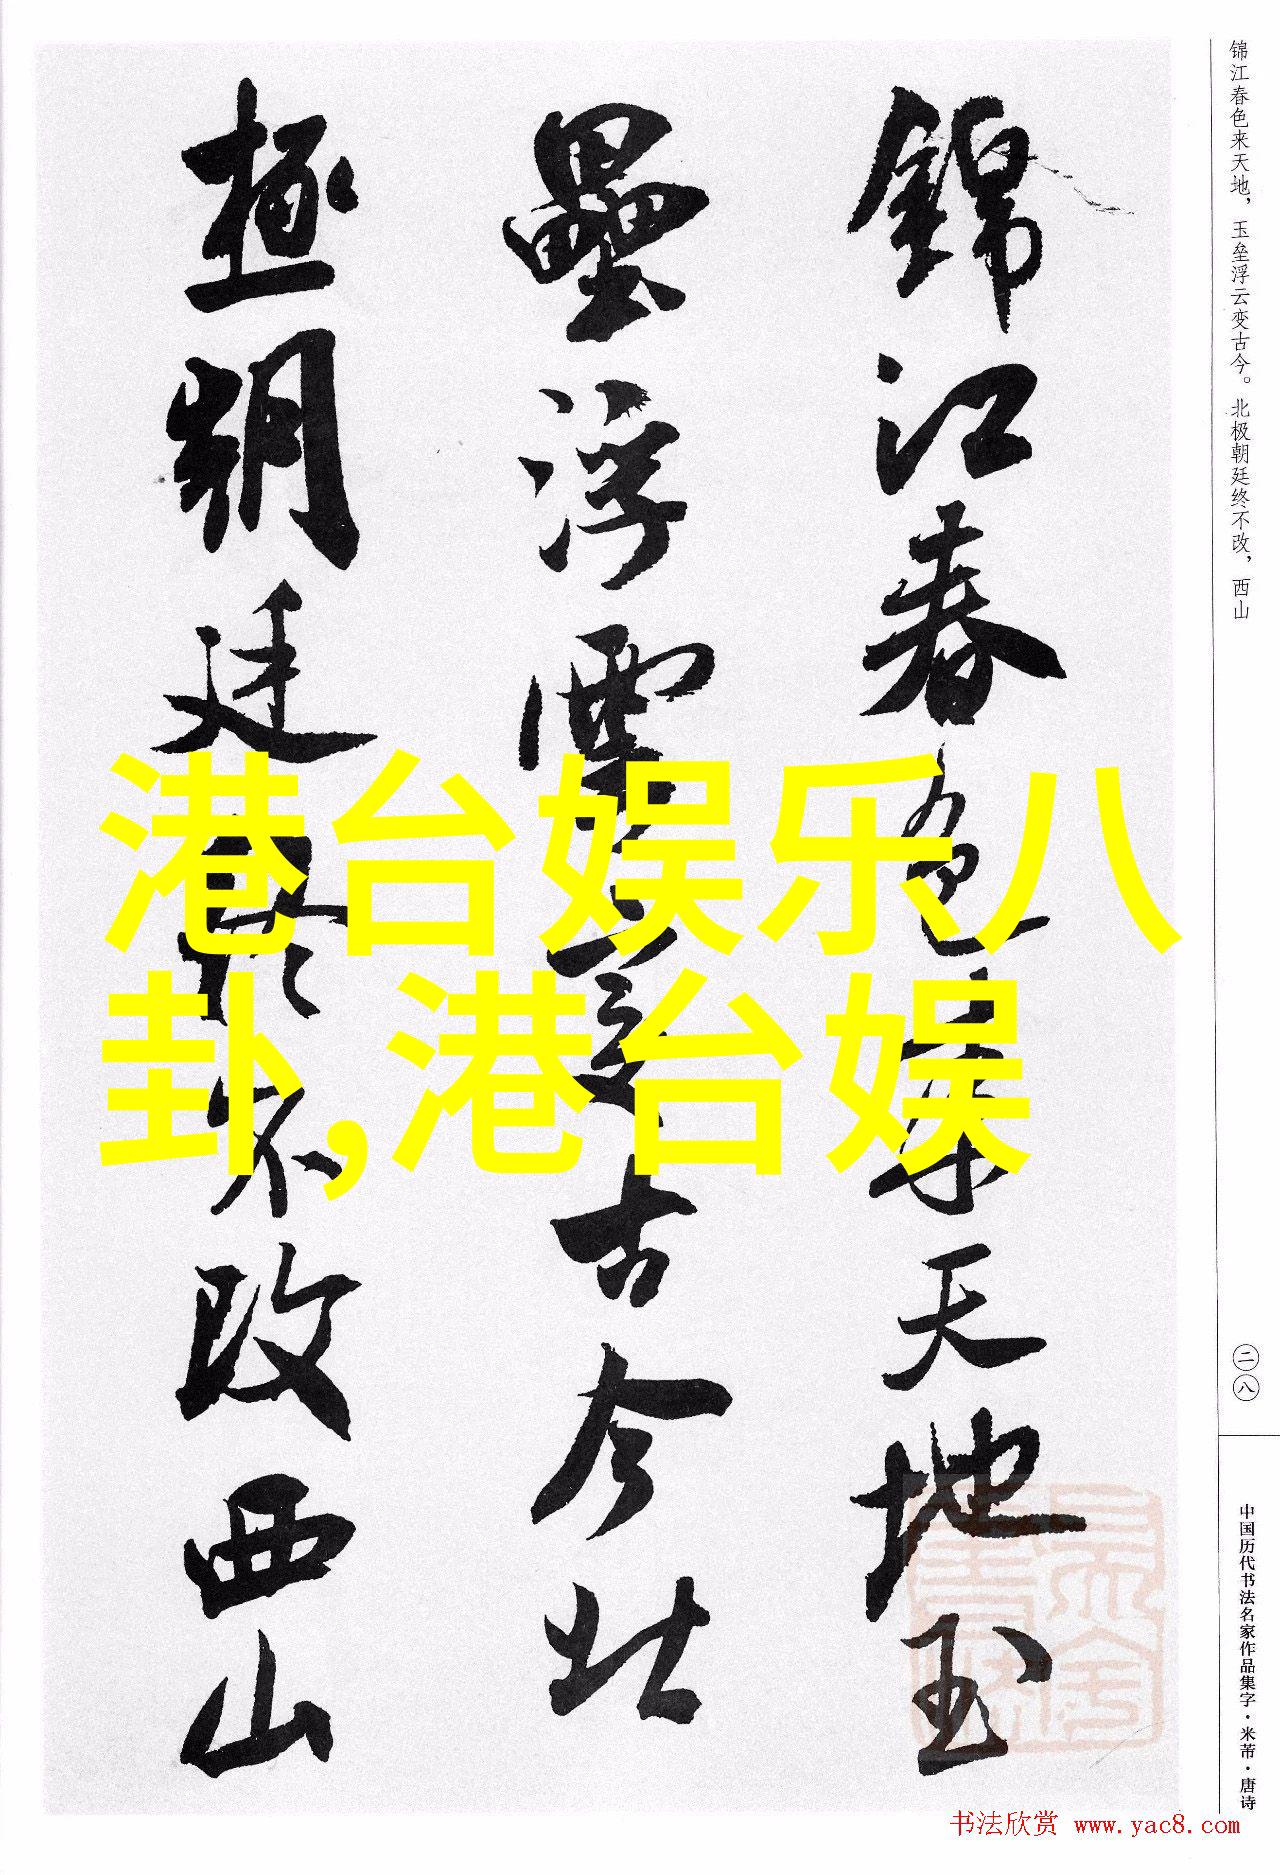 锦江春色来天地，玉垒浮云变古今。北极朝廷终不改，西山
錦江春色来天地玉
壘浮雲變古今北
極朝廷終不改西山
港台娱乐八
卦,港台娱
二八
中国历代书法名家作品集字·米芾·唐诗
书法欣赏 www.yac8.com